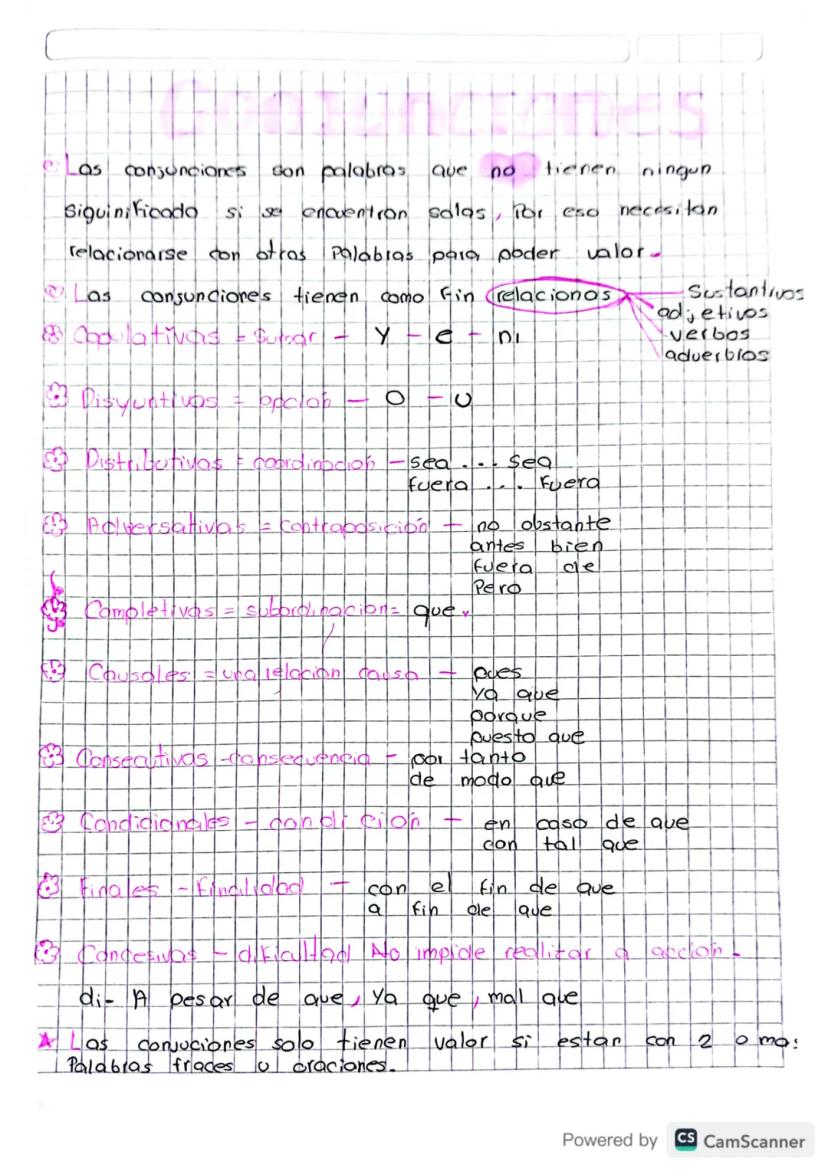 Conjunciones
Las conjunciones son palabras que no tienen ningun
siguinificado si se encuentran solas, Por eso necesitan
relacionarse con otras Palabras para poder valor.
Las consunciones tienen como fin relacionas
Sustantivos
adjetivos
verbos
adverbios
Copulativas = Sumar - Y - e - ni
Disyuntivas = opcion - O - U
Distributivas = coordinacion - sea ... sea
fuera ... Fuera
Adversativas = contraposición - no obstante
antes bien
fuera de
Pero
Completivas = subordinacion = que.
Causales = una relacion causa - pues
Ya que
porque
puesto que
Consecutivas - consequencia - por tanto
de modo que
Condicionales - condición - en caso de que
con tal que
Finales - Finalidad - con el fin de que
a fin de que
Concesivas - dificultad No impide realitar a accion.
di- A pesar de que, Ya que, mal que
Las conjuciones solo tienen valor si estan con 2 o mas
Palabras fraces u oraciones.
Powered by CS CamScanner